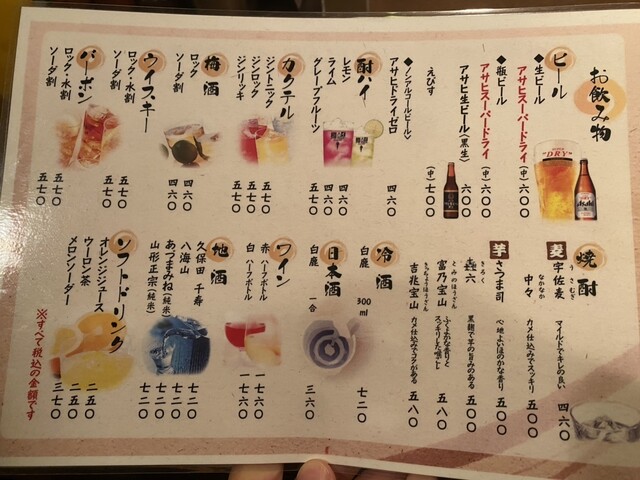 お飲み物
ビール
◆生ビール
アサヒスーパードライ (中) 六〇〇
◆瓶ビール
アサヒスーパードライ (中) 六〇〇
アサヒ生ビール(黒生) 六〇〇
えびす (中) 七〇〇
◆ノンアルコールビール◇
アサヒドライゼロ 四六〇
酎ハイ
レモン 四六〇
ライム 四六〇
グレープフルーツ 五七〇
カクテル
ジントニック 五七〇
ジンロック 五七〇
ジンリッキ 五七〇
梅酒
ロック 四六〇
ソーダ割 四六〇
ウイスキー
ロック・水割 五七〇
ソーダ割 五七〇
バーボン
ロック・水割 五七〇
ソーダ割 五七〇
焼酎
麦
うさむぎ
宇佐麦 マイルドでキレの良い 四六〇
なかなか
中々 カメ仕込みでスッキリ 五〇〇
芋
さつま司 心地よいほのかな香り 五〇〇
きろく
㐂六 黒麹で芋の旨みのある 五〇〇
とみのほうざん
富乃宝山 ふくよかな香りとスッキリした喉ごし 五八〇
きっちょうほうざん
吉兆宝山 カメ仕込みでコクがある 五八〇
冷酒
白鹿 300ml 七二〇
日本酒
白鹿 一合 三六〇
ワイン
赤 ハーフボトル 一七六〇
白 ハーフボトル 一七六〇
地酒
久保田 千寿 七二〇
八海山 七二〇
あづまみね(純米) 七二〇
山形正宗(純米) 七二〇
ソフトドリンク
オレンジジュース 二五〇
ウーロン茶 二五〇
メロンソーダー 三七〇
※すべて税込の金額です
DRY
Asahi